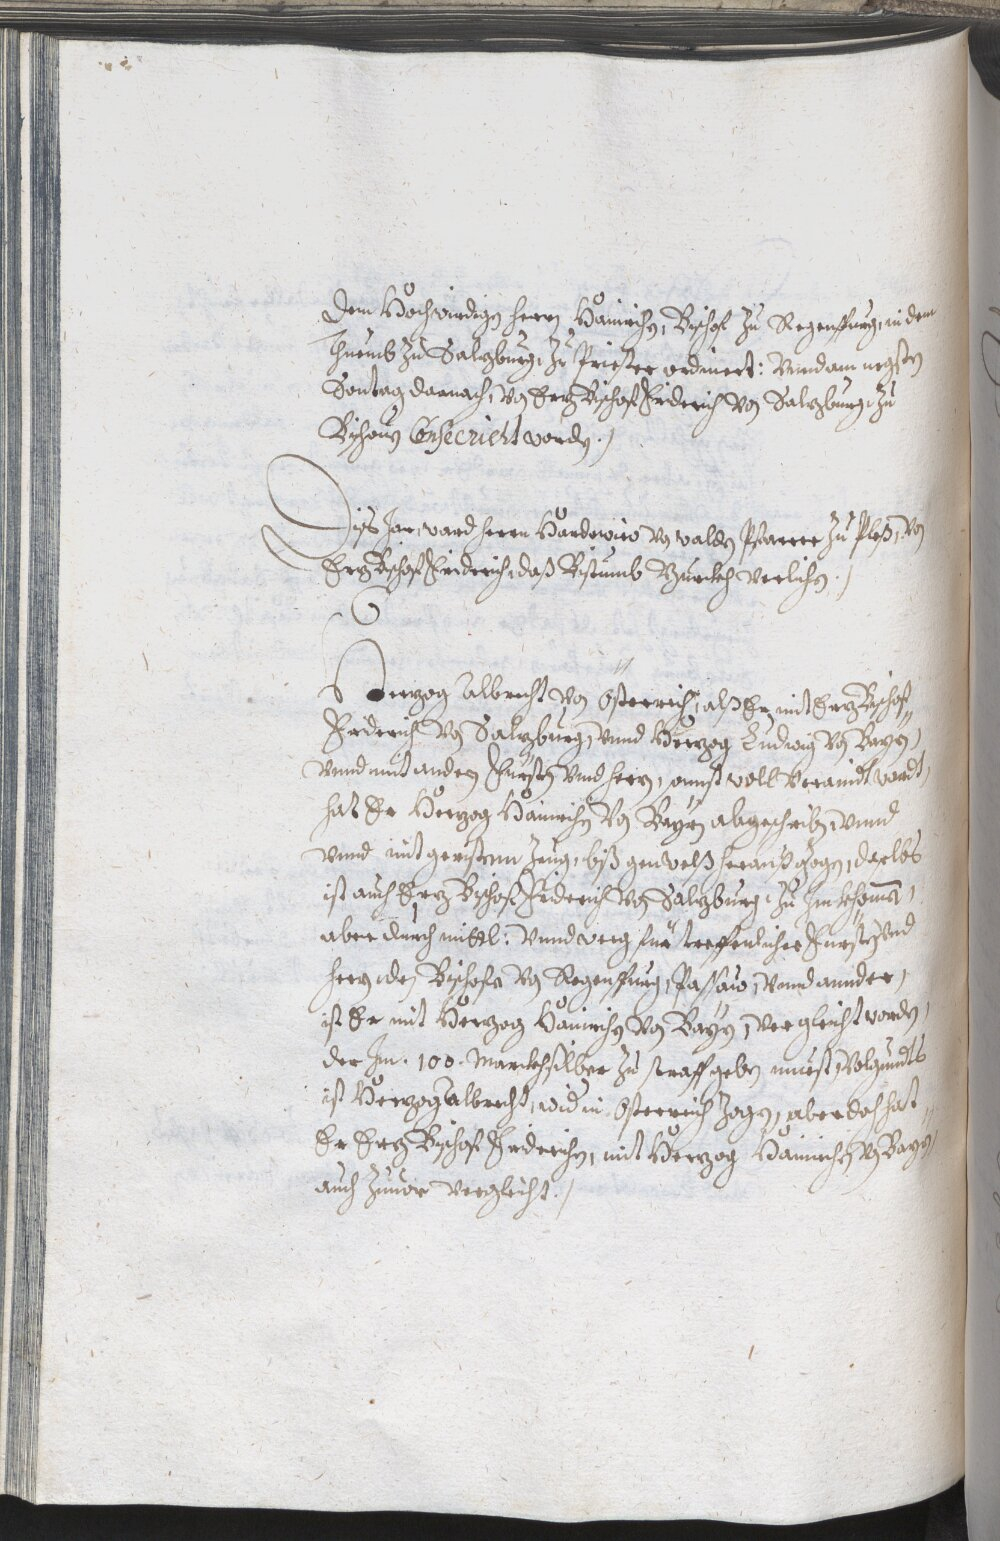 dem Hochwirdign herrn Hainrichn, Bischof zu Regenspurg, in dem
Thuemb zu Saltzburg, zu Priester ordiniert: Vnnd am negstn
Sontag darnach, von ErtzBischof Friderich von Saltzburg, zu
Bischoven Consecriert wordn./
Diss Jar, ward herrn Hardtwico von, Pfarrer zu, von
ErtzBischof Friderich, daß Bistumb verlichn./
Hertzog Albrecht von Össterreich, alß Er mit ErtzBischof
Friderich von Saltzburg, vnnd Hertzog Ludwig von Bayrn,
vnnd mit andern Fürstn vnd herrn, wardt,
hat Er Hertzog Hainrichn von Bayrn abgeschribn, vnnd
vnnd mit zeug, biß gen Welß heraufzogn, daselbs
ist auch ErtzBischof Friderich von Saltzburg, zu Im khomen,
aber durch mittl: vnnd weg treffenlicher Fürstn vnd
herrn, der Bischofe von Regenspurg, Passaw, vnnd annder,
ist Er mit Hertzog Hainrichn von Bayrn, verglicht wordn,
der Im. 100. Marckh silber zu straff geben muest, Volgundts
ist Hertzog Albrecht, wid in Össterreich zogn, aber doch hat
Er ErtzBischof Friderichn, mit Hertzog Hainrichn von Bayrn,
auch zuuor verglicht./